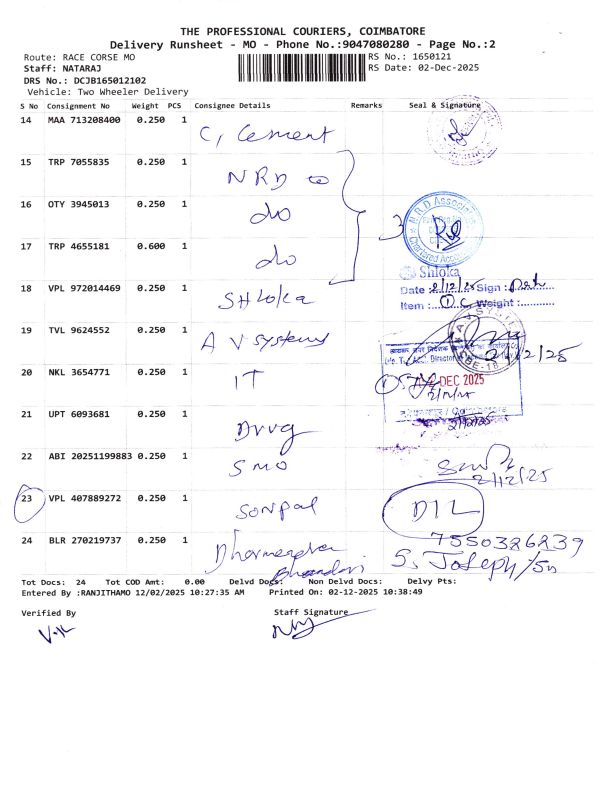 THE PROFESSIONAL COURIERS, COIMBATORE
Delivery Runsheet - MO - Phone No.:9047080280 - Page No.:2
Route: RACE CORSE MO RS No.: 1650121
Staff: NATARAJ RS Date: 02-Dec-2025
DRS No.: DCJB165012102
Vehicle: Two Wheeler Delivery
S No Consignment No Weight PCS Consignee Details Remarks Seal & Signature
14 MAA 713208400 0.250 1 C, Cement
15 TRP 7055835 0.250 1 NRD co
16 OTY 3945013 0.250 1 do 3 N R D Associates Chartered
17 TRP 4655181 0.600 1 do
Shloka
18 VPL 972014469 0.250 1 SHloka Date :2/12/25 Sign :
Item : 1 C Weight :
19 TVL 9624552 0.250 1 A V systems 2/12/25
20 NKL 3654771 0.250 1 IT DEC 2025
21 UPT 6093681 0.250 1 Drug 2/12/25
22 ABI 20251199883 0.250 1 SMO 2/12/25
23 VPL 407889272 0.250 1 Sonpal DIL
24 BLR 270219737 0.250 1 Dharmendra Bhandari 7550326239
S. Joseph/Sn
Tot Docs: 24 Tot COD Amt: 0.00 Delvd Docs: Non Delvd Docs: Delvy Pts:
Entered By :RANJITHAMO 12/02/2025 10:27:35 AM Printed On: 02-12-2025 10:38:49
Verified By Staff Signature